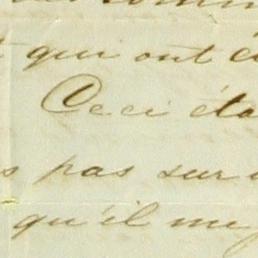 qui ont
Ceci éta
pas sur
qu'il me